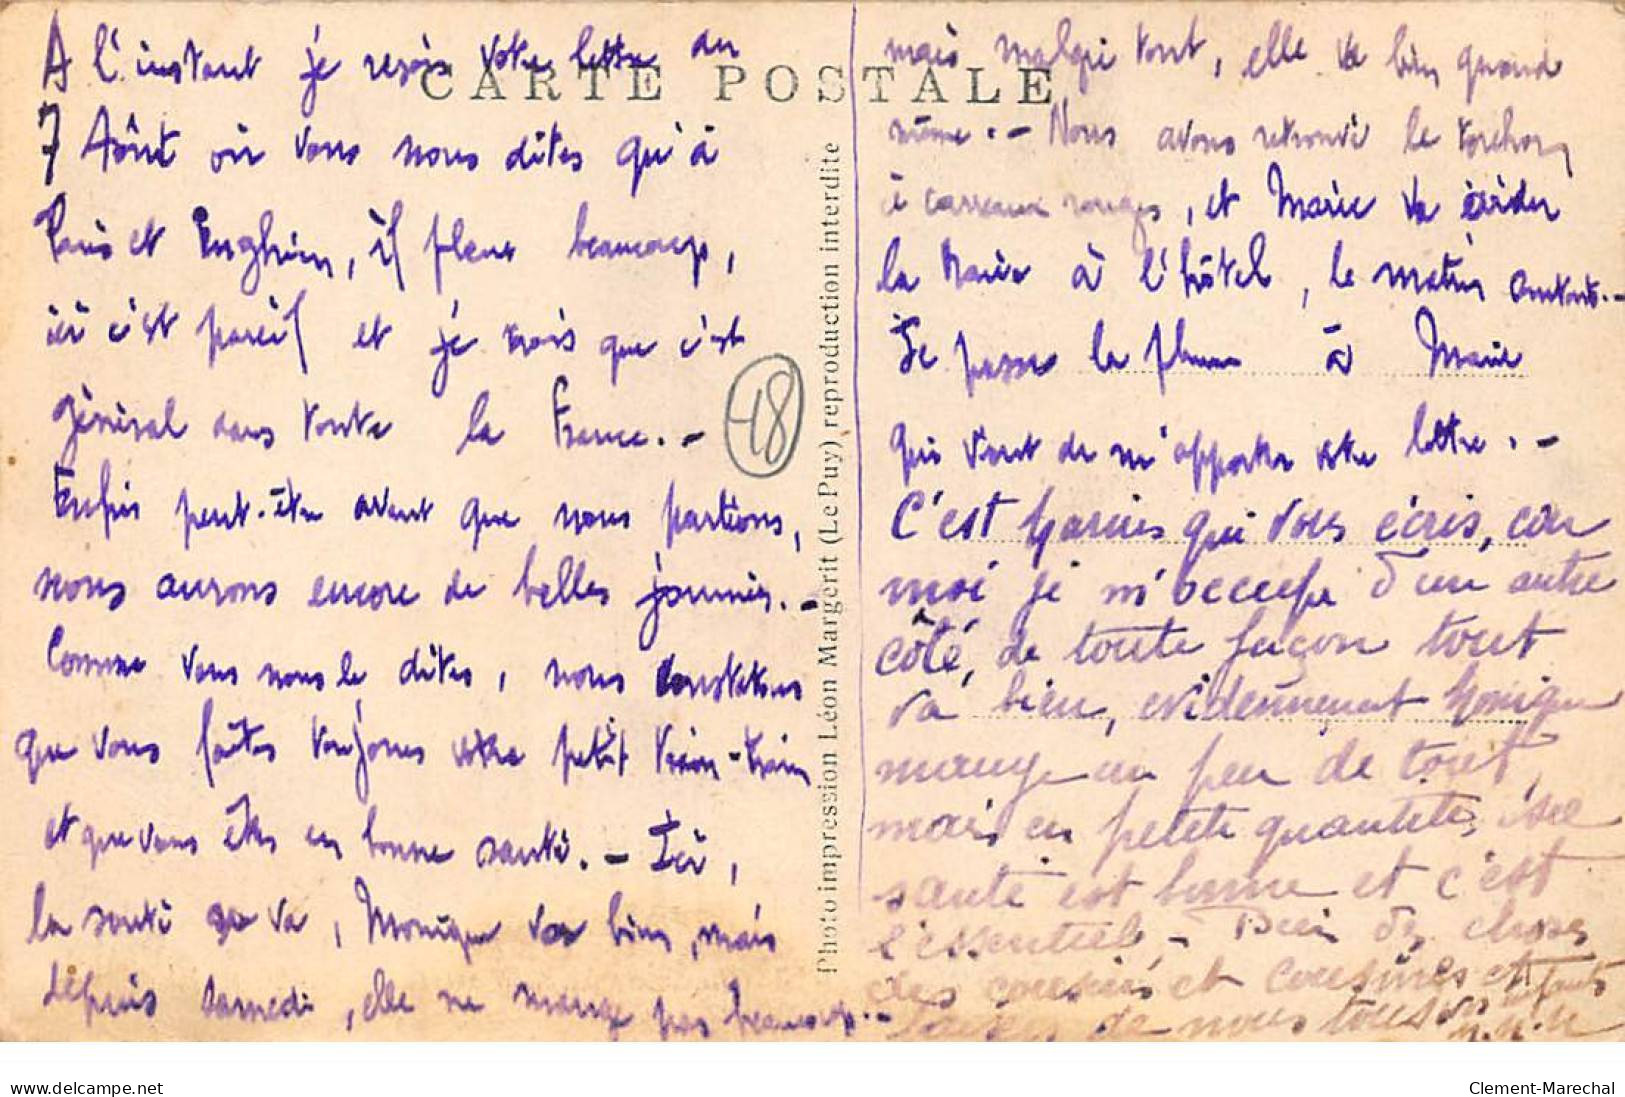 CARTE POSTALE
A l'instant je reçois votre lettre du
7 Aôut où vous nous dîtes qu'à
Paris et Enghien, il pleut beaucoup,
ici c'est pareil et je crois que c'est
général dans toute la France. -
Enfin peut-être avant que nous partions,
nous aurons encore de belles journées. -
Comme vous nous le dîtes, nous constatons
que vous faîtes toujours votre petit train-train
et que vous êtes en bonne santé. - Ici,
la santé va, Monique va bien, mais
depuis samedi, elle ne mange pas beaucoup. -
48
Photo impression Léon Margerit (Le Puy) reproduction interdite
mais malgré tout, elle va bien quand
même. - Nous avons retrouvé le torchon
à carreaux rouges, et Marie va
la Marie à l'hôtel, le matin -
Je passe la plume à Marie
qui vient de m'apporter votre lettre. -
C'est qui vous écris, car
moi je m'occupe d'un autre
côté, de toute façon tout
va bien, evidemment Monique
mange un peu de tout,
mais en petite quantité, sa
santé est bonne et c'est
l'essentiel, - Bien des choses
des cousins et cousines et
de nous tous vos enfants
www.delcampe.net
Clement-Marechal